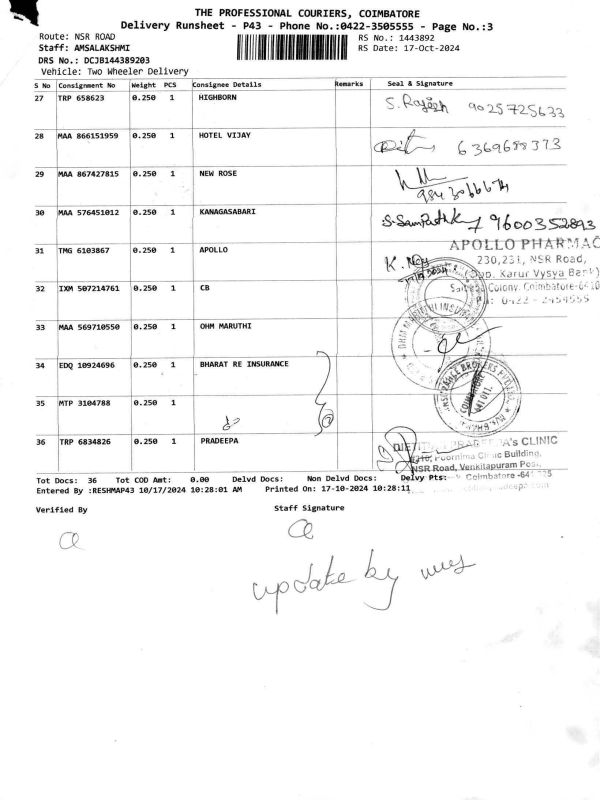 THE PROFESSIONAL COURIERS, COIMBATORE
Delivery Runsheet - P43 - Phone No.:0422-3505555 - Page No.:3
Route: NSR ROAD
RS No.: 1443892
Staff: AMSALAKSHMI
RS Date: 17-Oct-2024
DRS No.: DCJB144389203
Vehicle: Two Wheeler Delivery
S No Consignment No Weight PCS Consignee Details Remarks Seal & Signature
27 TRP 658623 0.250 1 HIGHBORN S. Rajesh 9025725633
28 MAA 866151959 0.250 1 HOTEL VIJAY 6369688373
29 MAA 867427815 0.250 1 NEW ROSE
30 MAA 576451012 0.250 1 KANAGASABARI S. Sampathk 9600352893
31 TMG 6103867 0.250 1 APOLLO
APOLLO PHARMAC
230,231, NSR Road,
Opp. Karur Vysya Bank)
Colony, Coimbatore-6410
0422 - 2454555
32 IXM 507214761 0.250 1 CB
33 MAA 569710550 0.250 1 OHM MARUTHI
34 EDQ 10924696 0.250 1 BHARAT RE INSURANCE
35 MTP 3104788 0.250 1
36 TRP 6834826 0.250 1 PRADEEPA
PRADEEPA's CLINIC
Poornima Clinic Building,
NSR Road, Venkitapuram Post,
Coimbatore -641
Tot Docs: 36 Tot COD Amt: 0.00 Delvd Docs: Non Delvd Docs: Delvy Pts:
Entered By :RESHMAP43 10/17/2024 10:28:01 AM Printed On: 17-10-2024 10:28:11
Verified By
Staff Signature
update by